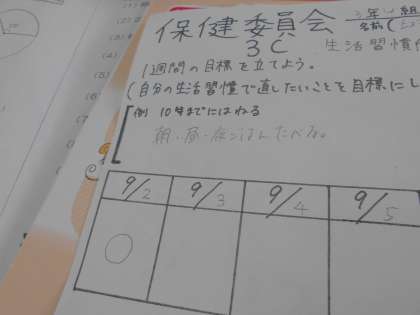 保健委員会
3年い組
名前(
3C
生活習慣
1週間の目標を立てよう。
(自分の生活習慣で直したいことを目標にし
例 10時までにはねる
朝・昼・夜ごはんたべる。
9/2 9/3 9/4 9/5
○